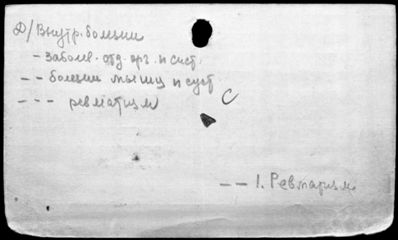 Д/Внутр. болезни
– заболев. отд. орг. и сист.
– – болезни мышц и суст.
– – – ревматизм
С
– – 1. Ревматизм